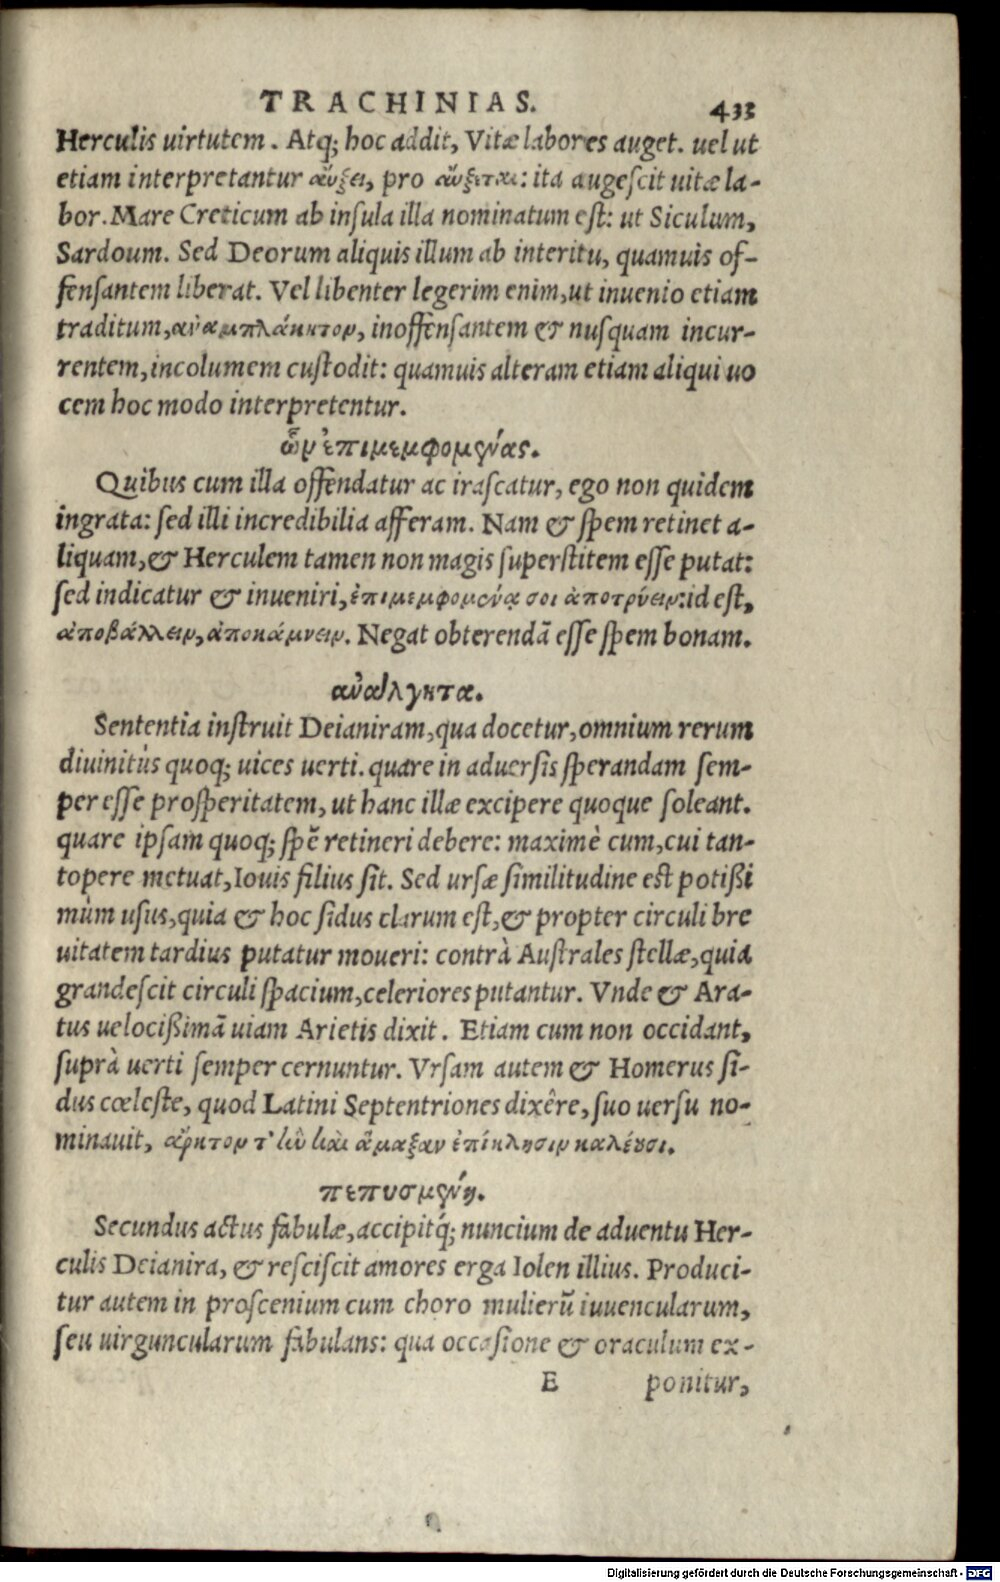 TRACHINIAS. 433
Herculis uirtutem. Atq; hoc addit, Vitæ labores auget. uel ut
etiam interpretantur αὔξει, pro αὔξεται: ita augescit uitæ la-
bor. Mare Creticum ab insula illa nominatum est: ut Siculum,
Sardoum. Sed Deorum aliquis illum ab interitu, quamuis of-
fensantem liberat. Vel libenter legerim enim, ut inuenio etiam
traditum, ἀναμπλάκητον, inoffensantem & nusquam incur-
rentem, incolumem custodit: quamuis alteram etiam aliqui uo
cem hoc modo interpretentur.
ὧν ἐπιμεμφομένας.
Quibus cum illa offendatur ac irascatur, ego non quidem
ingrata: sed illi incredibilia afferam. Nam & spem retinet a-
liquam, & Herculem tamen non magis superstitem esse putat:
sed indicatur & inueniri, ἐπιμεμφομένᾳ σοι ἀποτρύειν: id est,
ἀποβάλλειν, ἀποκάμνειν. Negat obterendā esse spem bonam.
ἀνάλγητα.
Sententia instruit Deianiram, qua docetur, omnium rerum
diuinitùs quoq; uices uerti. quare in aduersis sperandam sem-
per esse prosperitatem, ut hanc illæ excipere quoque soleant.
quare ipsam quoq; spē retineri debere: maximè cum, cui tan-
topere metuat, Iouis filius sit. Sed ursæ similitudine est potißi
mùm usus, quia & hoc sidus clarum est, & propter circuli bre
uitatem tardius putatur moueri: contrà Australes stellæ, quia
grandescit circuli spacium, celeriores putantur. Vnde & Ara-
tus uelocißimā uiam Arietis dixit. Etiam cum non occidant,
suprà uerti semper cernuntur. Vrsam autem & Homerus si-
dus cœleste, quod Latini Septentriones dixêre, suo uersu no-
minauit, ἄρκτον τ' ἣν καὶ ἄμαξαν ἐπίκλησιν καλέουσι.
πεπυσμένη.
Secundus actus fabulæ, accipitq́; nuncium de aduentu Her-
culis Deianira, & resciscit amores erga Iolen illius. Produci-
tur autem in proscenium cum choro mulierū iuuencularum,
seu uirguncularum fabulans: qua occasione & oraculum ex-
E ponitur,
Digitalisierung gefördert durch die Deutsche Forschungsgemeinschaft - DFG